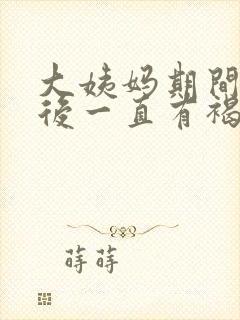 大姨妈期間
後一直有褐
蒔蒔